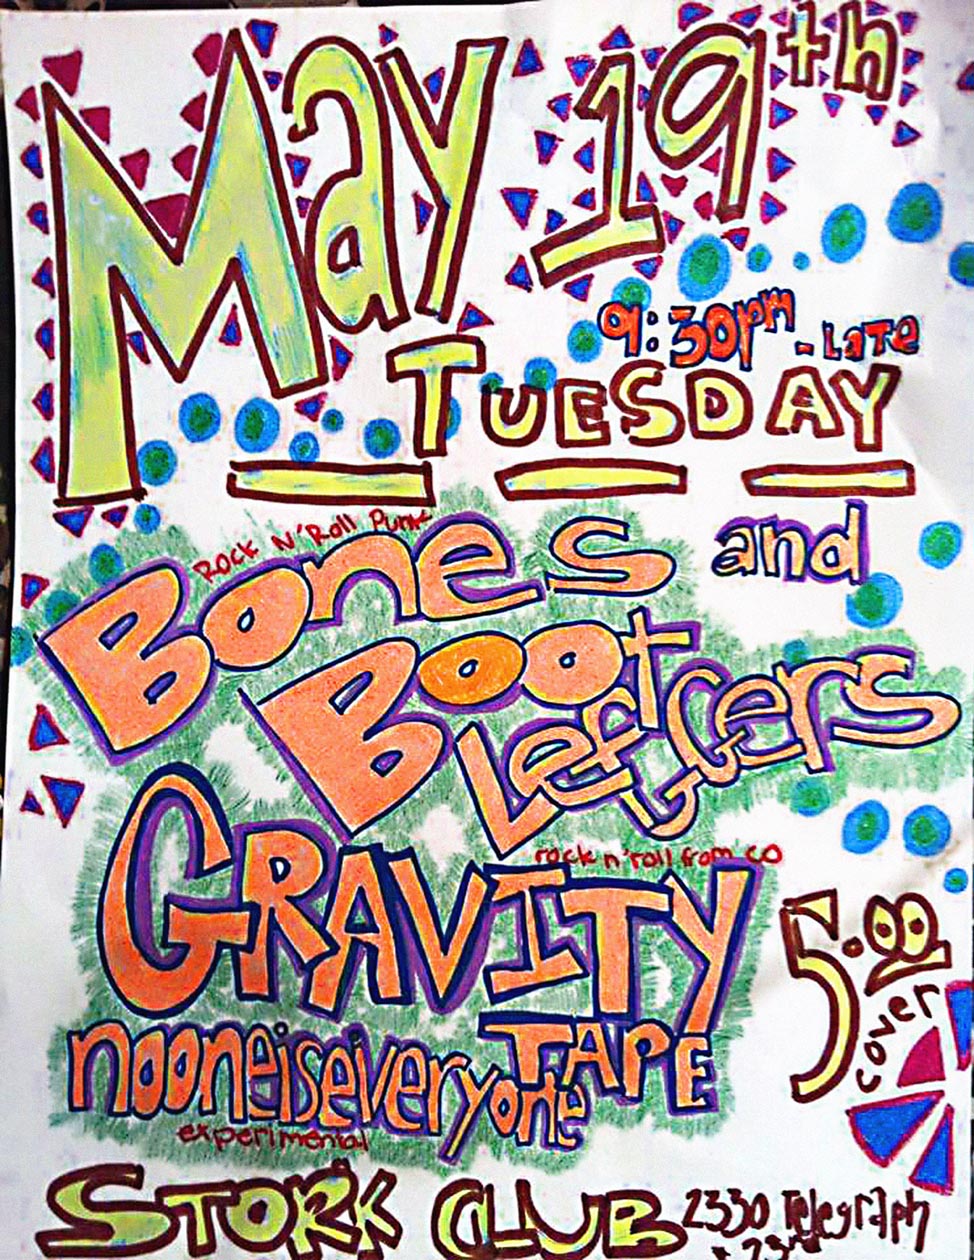 May 19th
9:30pm - LaTe
TUESDAY
Rock N'Roll Punk
Bones and
Boot
LefTGGers
rock n'roll from CO
GRAVITY
TAPE
5.00
cover
nooneiseiveryone
experimental
STORK CLUB 2330 Telegraph